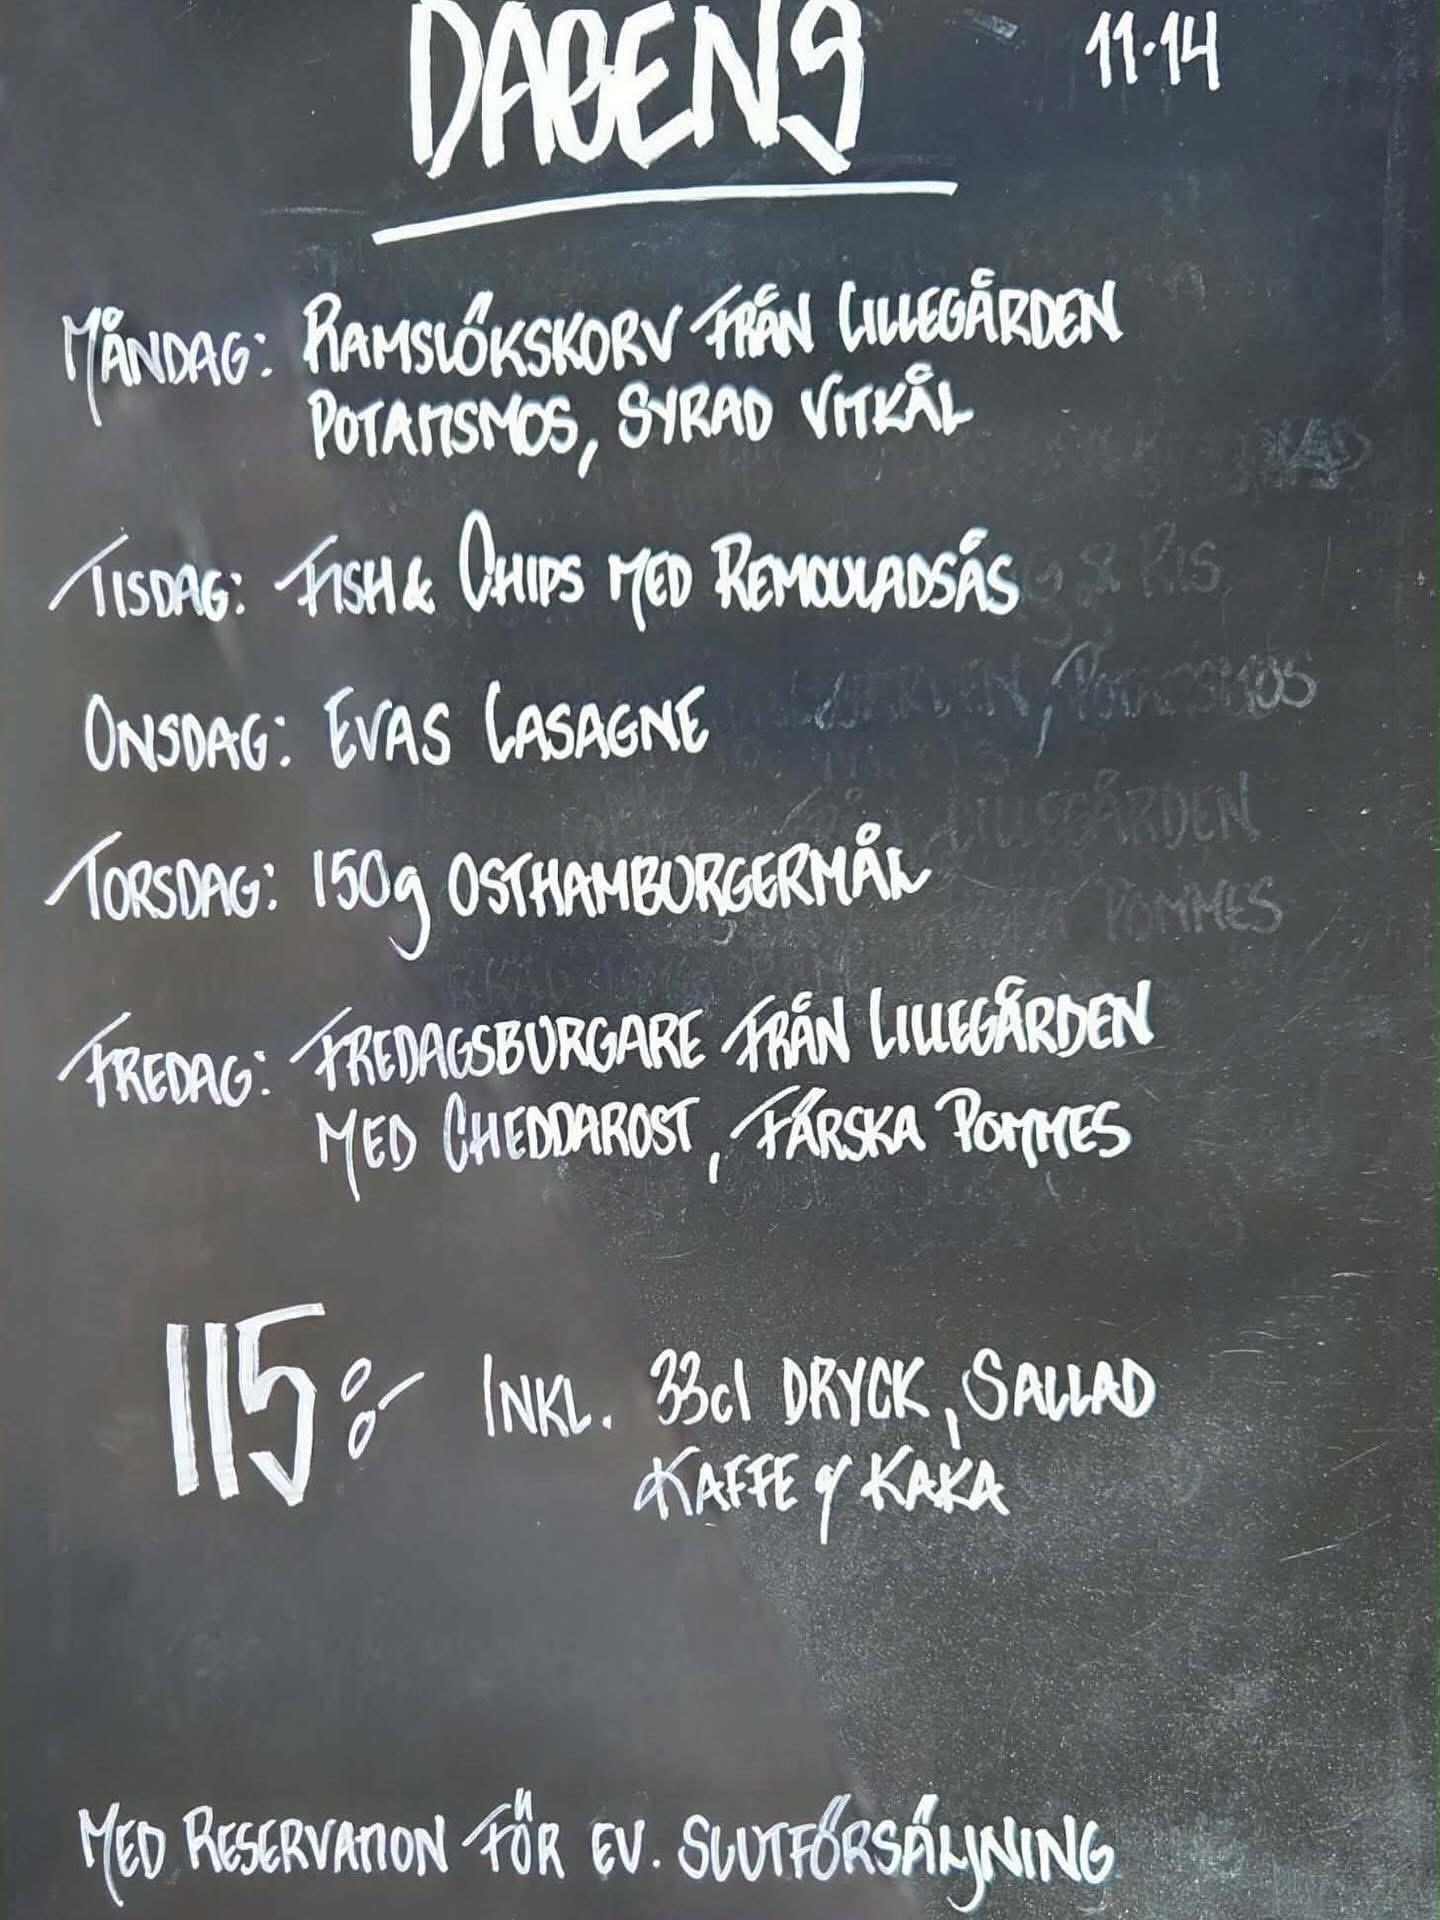 DAGENS
11-14
MÅNDAG: RAMSLÖKSKORV FRÅN LILLEGÅRDEN
POTATISMOS, SYRAD VITKÅL
TISDAG: FISH & CHIPS MED REMOULADSÅS
ONSDAG: EVAS LASAGNE
TORSDAG: 150g OSTHAMBURGERMÅL
FREDAG: FREDAGSBURGARE FRÅN LILLEGÅRDEN
MED CHEDDAROST, FÄRSKA POMMES
115:- INKL. 33cl DRYCK, SALLAD
KAFFE & KAKA
MED RESERVATION FÖR EV. SLUTFÖRSÄLJNING